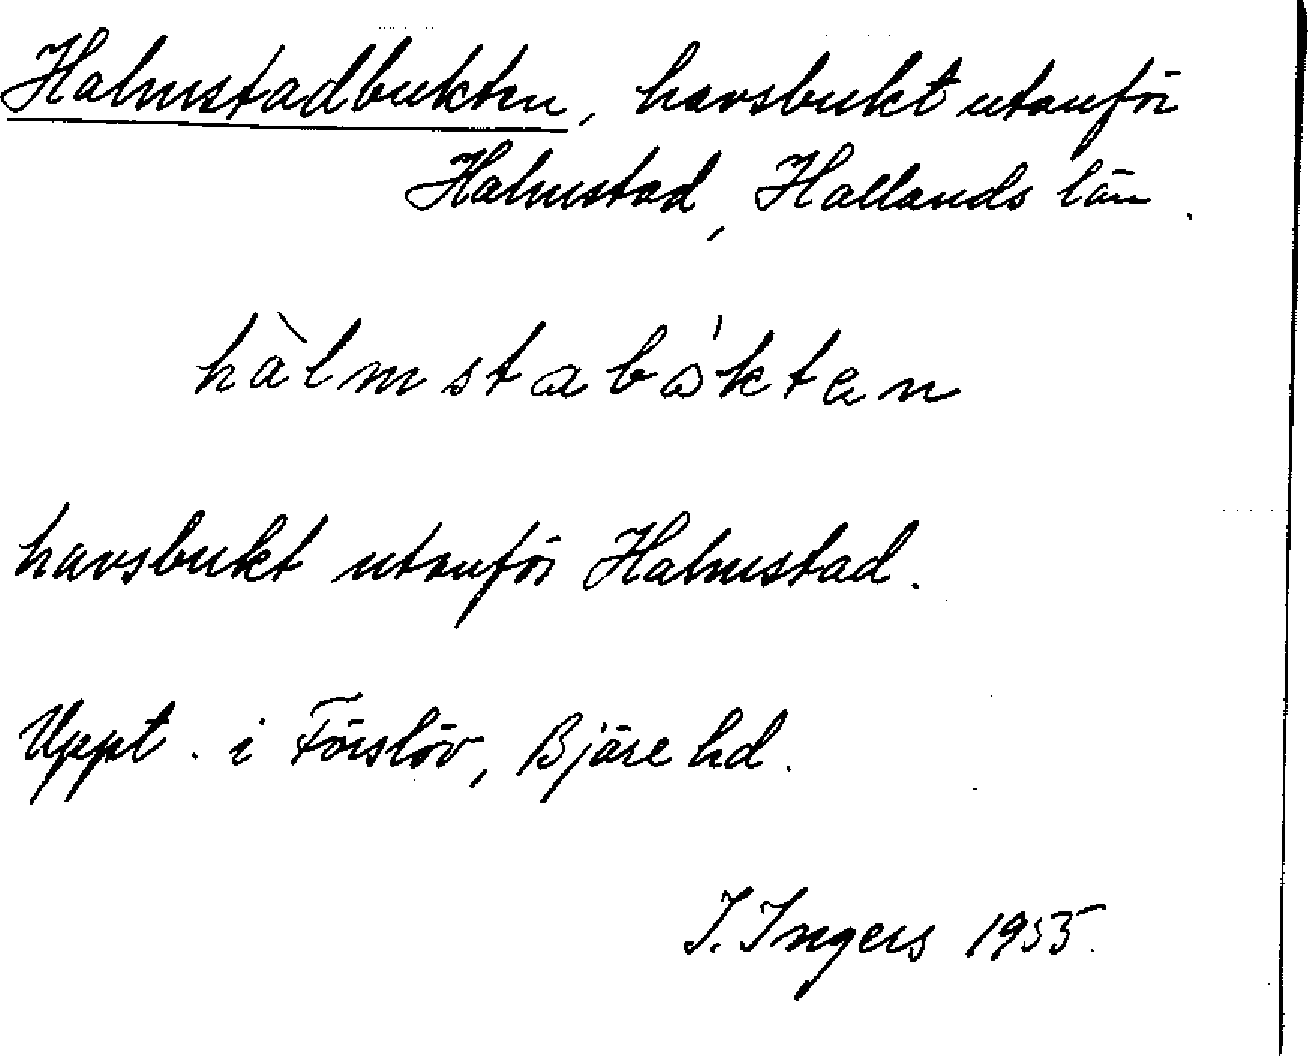 Halmstadbukten, havsbukt utanför
Halmstad, Hallands län.
hàlmstabåktan
havsbukt utanför Halmstad.
Uppt. i Förslöv, Bjäre hd.
I. Ingers 1955.